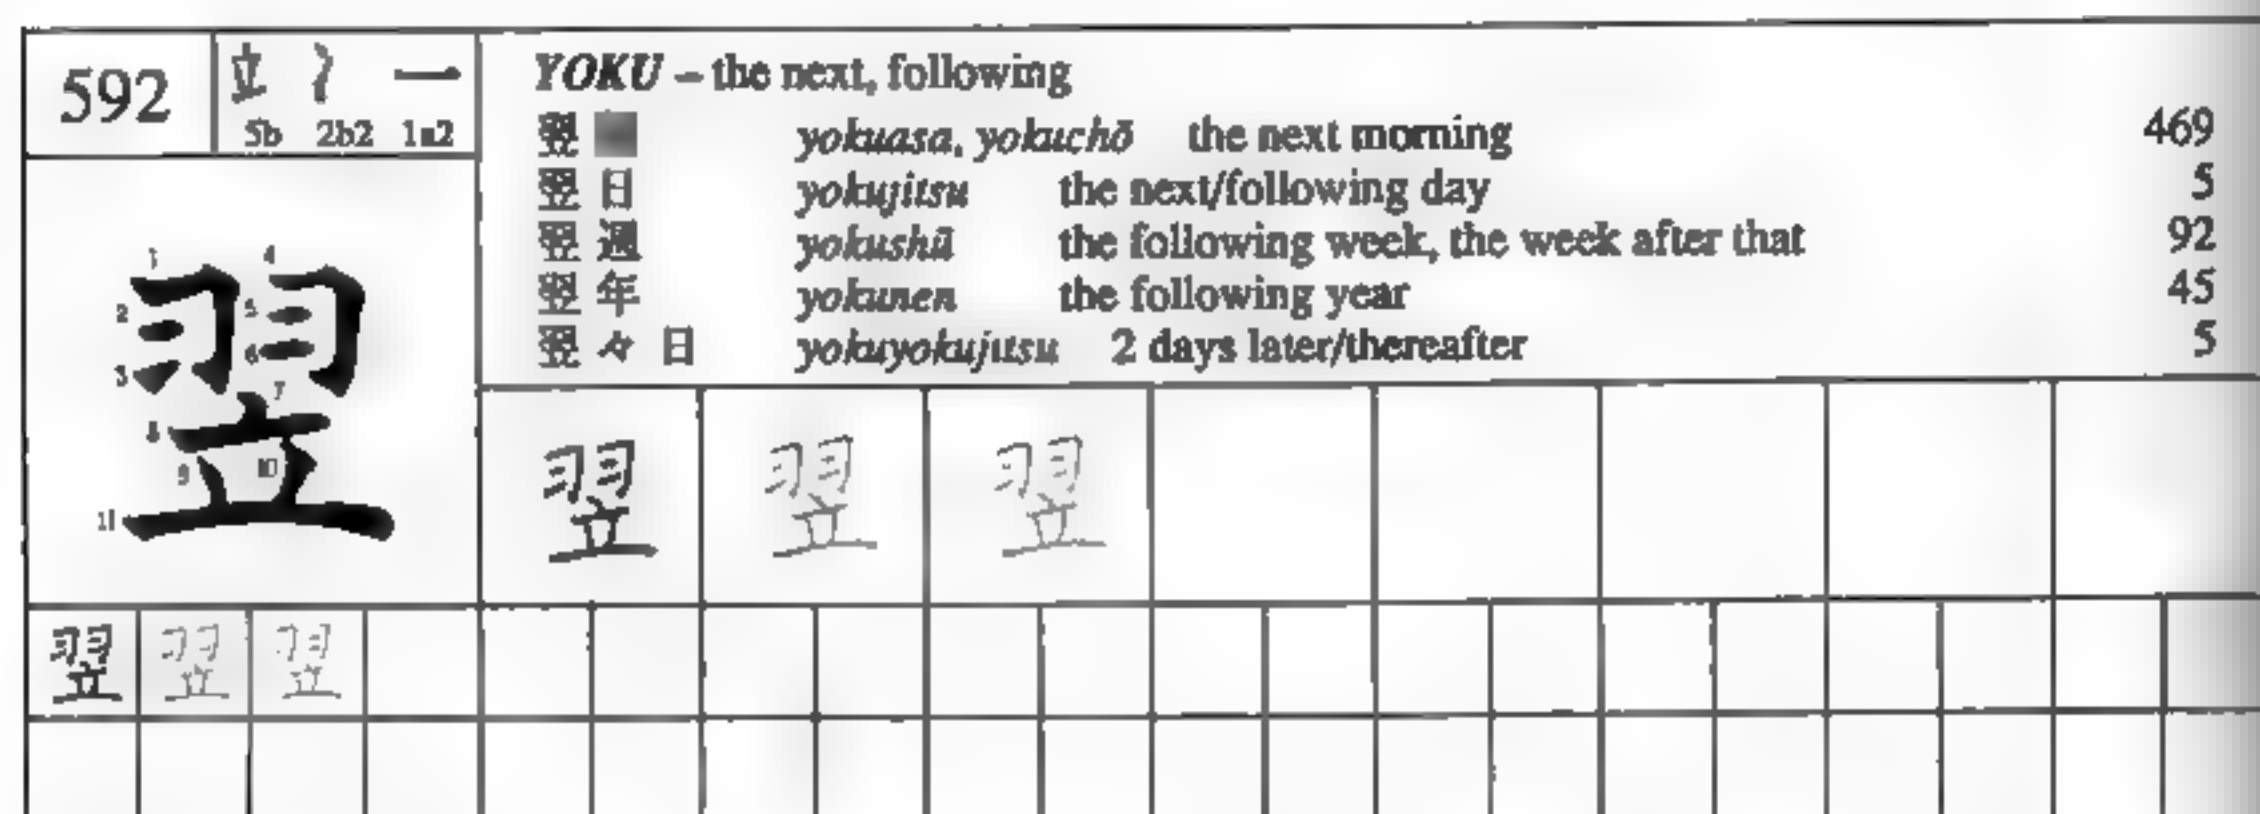 592
5b 2b2 1a2
YOKU – the next, following
翌 yokuasa, yokuchō the next morning 469
翌日 yokujitsu the next/following day 5
翌週 yokushū the following week, the week after that 92
翌年 yokunen the following year 45
翌々日 yokuyokujitsu 2 days later/thereafter 5
1 2 3 4 5 6 7 8 9 10 11
翌
翌 翌 翌
翌 翌 翌